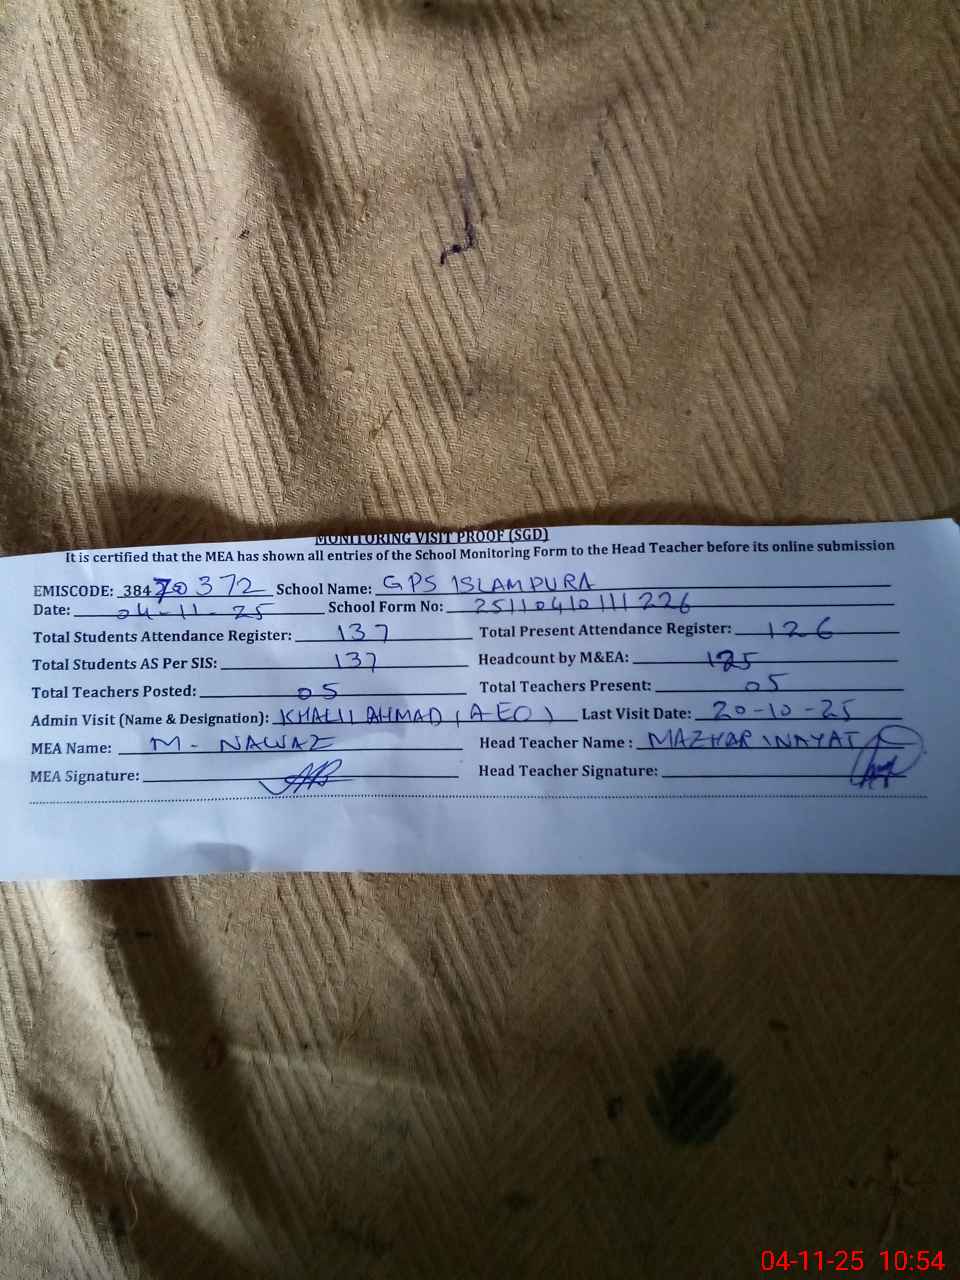 MONITORING VISIT PROOF (SGD)
It is certified that the MEA has shown all entries of the School Monitoring Form to the Head Teacher before its online submission
EMISCODE: 38470372 School Name: GPS ISLAMPURA
Date: 04-11-25 School Form No: 25110410111226
Total Students Attendance Register: 137 Total Present Attendance Register: 126
Total Students AS Per SIS: 137 Headcount by M&EA: 125
Total Teachers Posted: 05 Total Teachers Present: 05
Admin Visit (Name & Designation): KHALIL AHMAD (AEO) Last Visit Date: 20-10-25
MEA Name: M-NAWAZ Head Teacher Name : MAZHAR INAYAT
MEA Signature: Head Teacher Signature:
04-11-25 10:54